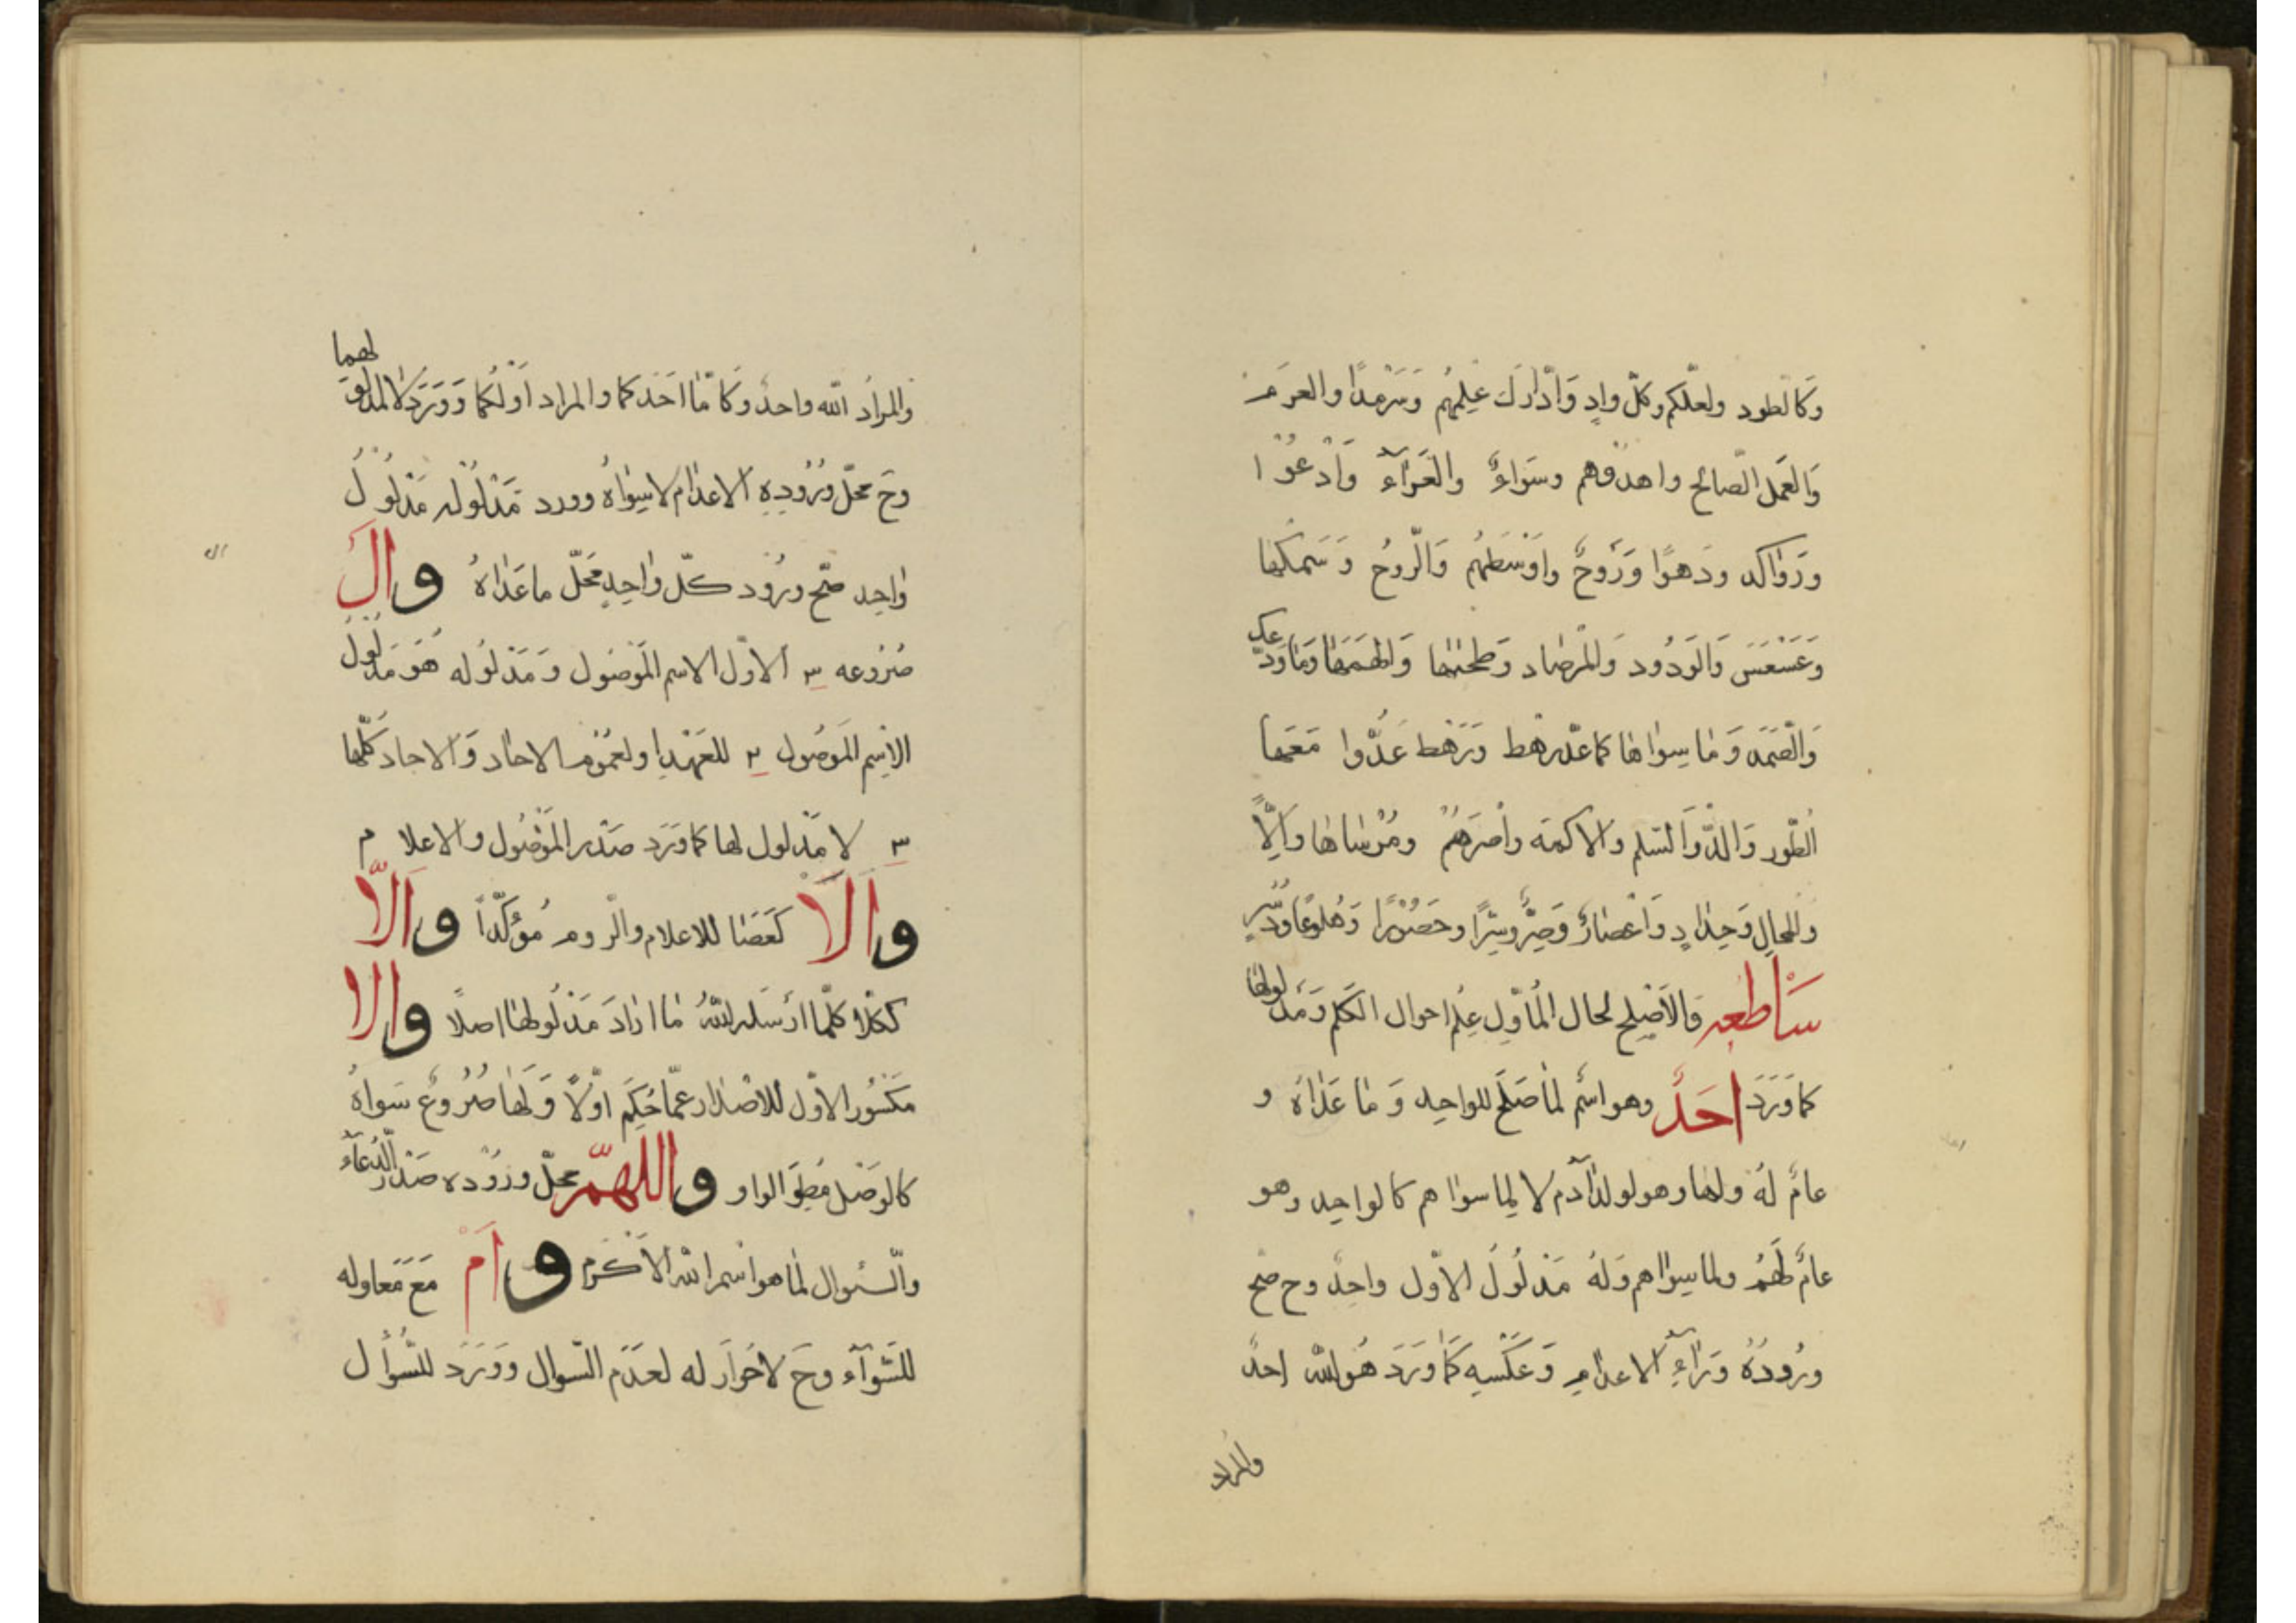 وَكَالطود ولعلّكم وكلّ وادٍ وَادّارَكَ عِلمُهُم وَسَرْمَدًا والعَرِمِ
وَالعَمَل الصّالح واهدوهم وسَوَاءٌ والعَرَآءِ وَادْعُوْا
وَرَوٰاكد ورَهوًا وَرَوحٌ واَوْسَطهُم وَالرّوحُ وَسَمكها
وَعَسْعَسَ وَالوَدُود وَالمرصٰاد وَطحٰىٰها وَالهمَهَا وَمٰا وَدّعك
وَالصّمَد وَمٰا سِوٰاهٰا كما عدّ رهط وَرَهط عَدُّوا مَعَهٰا
الطّور وَالسّلم والاكمه واُصرَهُمْ ومُرْسٰاهٰا وَاِلاًّ
وَالمحالِ وَحِدٰادٍ وَاعْصٰارٌ وَصِرٌّ وسِرًّا وحَصُوْرًا وَهَلُوعًا وَدُسُرٍ
سَاطعه وَالاَصْلح لحال المُأوّل عِلمُ احوال الكَلِم وَمَدلولهٰا
كما وَرَدَ اَحَدٌ وهو اسمٌ لمٰا صَلَحَ للواحِد وَمٰا عَدٰاهُ و
عامٌ لَهُ ولهٰا وهو لولد آدم لا لِمٰا سوٰاهم كالواحِد وهو
عامٌ لَهُمْ ولمٰا سِوٰاهم وَلهُ مَدلُولُ الاوّل واحِدٌ وح صح
وُرُودُهُ وَرٰاءَ الاعدٰامِ وَعَكسِهِ كَمٰا وَرَدَ هُوَ اللّٰه احدٌ
والمراد
والمرادُ اللّه واحدٌ وَكَامّٰا احَدكما والمراد اَوّلُكما وَوَرَدَ لا مدلول لهما
وحَ محلّ وُرُودِهِ الاعدٰام لا سِوٰاهُ وورد مَدلُوله مَدلُولُ
وٰاحِد صحّ ورُود كلّ وٰاحِدٍ محَلّ ما عَدٰاهُ وال
صُرُوعه ٣ الاوّل الاسم المَوصُول وَمَدلُوله هُوَ مَدلُولُ
الاسم المَوصُول ٢ للعَهْدِ او لعمُوم الاحٰاد وَالاحاد كُلّها
٣ لا مَدلول لها كما وَرَد صَدرَ المَوْصُول والاعلام
وَاَلاَ كعَصَا للاعلام والرّوم مُؤكّدًا وَالاّ
ككلاّ كلّما ارْسَله اللّٰهُ مٰا ارٰادَ مَدلُولهٰا اصلاً والا
مَكسُور الاوّل للاصْدٰار عَمّا حُكِمَ اوّلًا وَلهٰا صُرُوعٌ سِوٰاهُ
كالوَصْل مُطِوَ الواو واللهمّ محلّ وُرُوده صَدْرَ الدّعآء
والسّئوال لمٰا هو اسم اللّه الاَكرم وَاَمْ مَعَ مَعادله
للسّوَآء وحَ لا حَوارَ له لعدَم السّوال وَوَرَد للسُّؤال